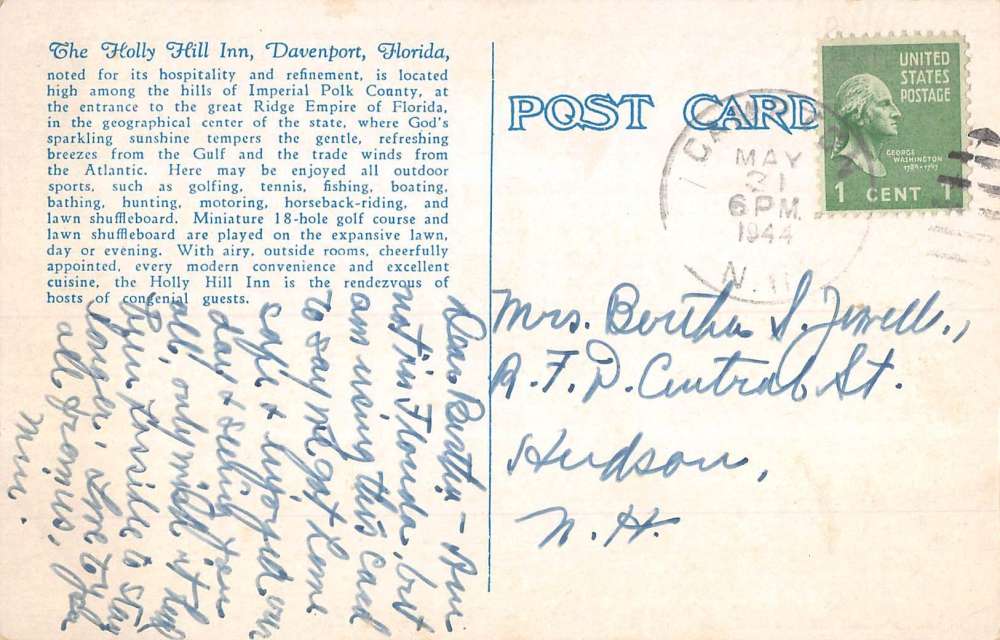 The Holly Hill Inn, Davenport, Florida,
noted for its hospitality and refinement, is located
high among the hills of Imperial Polk County, at
the entrance to the great Ridge Empire of Florida,
in the geographical center of the state, where God's
sparkling sunshine tempers the gentle, refreshing
breezes from the Gulf and the trade winds from
the Atlantic. Here may be enjoyed all outdoor
sports, such as golfing, tennis, fishing, boating,
bathing, hunting, motoring, horseback-riding, and
lawn shuffleboard. Miniature 18-hole golf course and
lawn shuffleboard are played on the expansive lawn,
day or evening. With airy, outside rooms, cheerfully
appointed, every modern convenience and excellent
cuisine, the Holly Hill Inn is the rendezvous of
hosts of congenial guests.
Dear Bertha - Am
not in Florida, but
am using this card
to say we got home
safe & enjoyed our
day & seeing you
all, only wish it had
been possible to stay
longer. Love to you
all from us,
Min.
POST CARD
MAY
31
6 PM
1944
N.H.
UNITED
STATES
POSTAGE
GEORGE
WASHINGTON
1789-1797
1 CENT 1
Mrs. Bertha S. Jewell.,
R.F.D. Central St.
Hudson,
N.H.